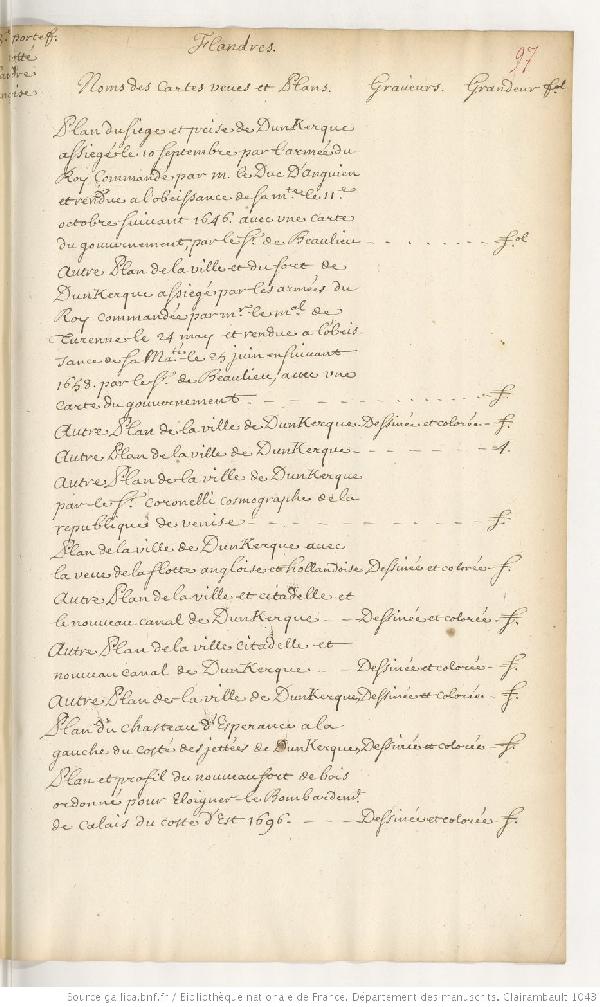 portef.
Flandres.
97
Noms des Cartes veues et Plans. Graueurs. Grandeur fol
Plan du siege et prise de DunKerque
assiegé le 10 septembre par l'armée du
Roy Commandé par m. le Duc D'anguien
et rendue a l'obeissance de sa m.te le 11.e
octobre suiuant 1646. avec vne carte
du gouuernement, par le S.r de Beaulieu - - . . . . . . . fol
Autre Plan de la ville et du fort de
DunKerque assiegé par les armées du
Roy commandée par m.r le m.al de
Turenne le 24 may et rendue a l'obeis
sance de sa Ma.té le 25 juin ensuiuant
1658. par le S.r de Beaulieu, avec vne
carte du gouuernement. - - - - - - - f.
Autre Plan de la ville de DunKerque Dessinée et colorée - f.
Autre Plan de la ville de DunKerque - - - - - - - 4.
Autre Plan de la ville de DunKerque
par le S.r coronelli cosmographe de la
republique de venise - - - - - - - - f.
Plan de la ville de DunKerque avec
la veue de la flotte angloise et hollandoise Dessinée et colorée f.
Autre Plan de la ville et citadelle et
le nouueau canal de DunKerque - - Dessinée et colorée - f.
Autre Plan de la ville citadelle et
nouueau canal de DunKerque - - Dessinée et colorée - f.
Autre Plan de la ville de DunKerque, Dessinée et colorée - f.
Plan du chasteau d'Esperance a la
gauche du costé des jettées de DunKerque, Dessinée et colorée - f.
Plan et profil du nouueau fort de bois
ordonné pour Eloigner le Bombardem.t
de Calais du costé d'Est 1696. - - - Dessinée et colorée - f.
Source gallica.bnf.fr / Bibliothèque nationale de France. Département des manuscrits. Clairambault 1043